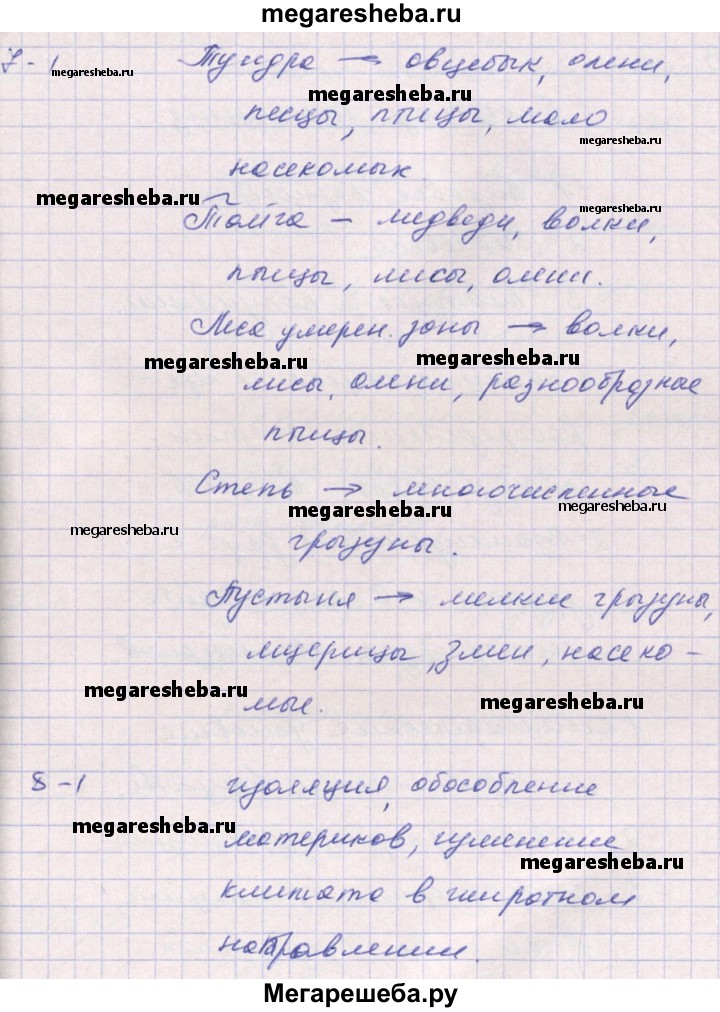 megaresheba.ru
7-1 Тундра → овцебык, олени,
megaresheba.ru
megaresheba.ru
песцы, птицы, мало
megaresheba.ru
насекомых.
megaresheba.ru
megaresheba.ru
Тайга - медведи, волки,
птицы, лисы, олени.
Леса умерен. зоны → волки,
megaresheba.ru
megaresheba.ru
лисы, олени, разнообразные
птицы.
Степь → многочисленные
megaresheba.ru
megaresheba.ru
megaresheba.ru
грызуны.
Пустыня → мелкие грызуны,
ящерицы, змеи, насеко-
megaresheba.ru
megaresheba.ru
мые.
8-1 изоляция, обособление
megaresheba.ru
материков, изменение
megaresheba.ru
климата в широтном
направлении.
Мегарешеба.ру